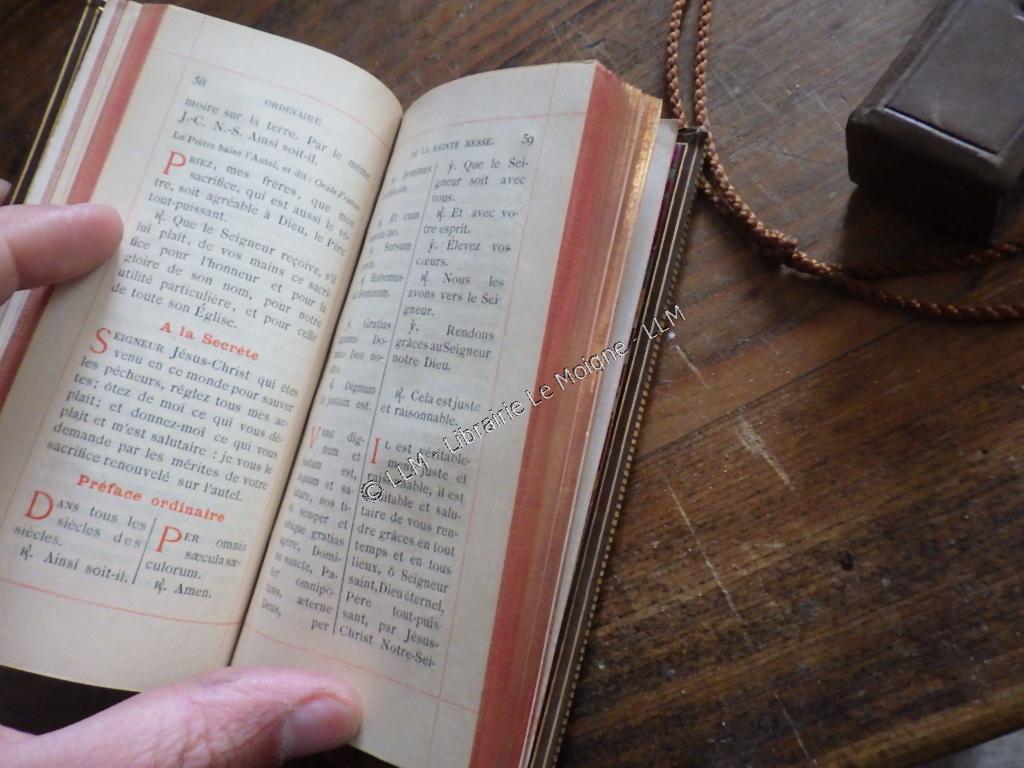 58
ORDINAIRE
moire sur la terre. Par le même
J.-C. N.-S. Ainsi soit-il.
Le Prêtre baise l'Autel, et dit : Orate Fratres
PRIEZ, mes frères, que mon
sacrifice, qui est aussi le vô-
tre, soit agréable à Dieu, le Père
tout-puissant.
℟. Que le Seigneur reçoive, s'il
lui plaît, de vos mains ce sacri-
fice pour l'honneur et pour la
gloire de son nom, pour notre
utilité particulière, et pour celle
de toute son Église.
A la Secrète
SEIGNEUR Jésus-Christ qui êtes
venu en ce monde pour sauver
les pécheurs, réglez tous mes ac-
tes; ôtez de moi ce qui vous dé-
plaît; et donnez-moi ce qui vous
plaît et m'est salutaire : je vous le
demande par les mérites de votre
sacrifice renouvelé sur l'autel.
Préface ordinaire
DANS tous les
siècles des
siècles.
℟. Ainsi soit-il.
PER omnia
sæcula sæ-
culorum.
℟. Amen.
DE LA SAINTE MESSE.
59
Dominus
Et cum
Sursum
Habemus
Dominum.
Gratias
Do-
Deo no-
Dignum
justum est.
VERE dig-
num et
justum est,
æquum et sa-
lutare, nos ti-
bi semper et
ubique gratias
agere, Domi-
ne sancte, Pa-
ter omnipo-
tens, æterne
Deus, per
℣. Que le Sei-
gneur soit avec
vous.
℟. Et avec vo-
tre esprit.
℣. Élevez vos
cœurs.
℟. Nous les
avons vers le Sei-
gneur.
℣. Rendons
grâces au Seigneur
notre Dieu.
℟. Cela est juste
et raisonnable.
IL est véritable-
ment juste et
raisonnable, il est
équitable et salu-
taire de vous ren-
dre grâces en tout
temps et en tous
lieux, ô Seigneur
saint, Dieu éternel,
Père tout-puis-
sant, par Jésus-
Christ Notre-Sei-
© LLM - Librairie Le Moigne - LLM